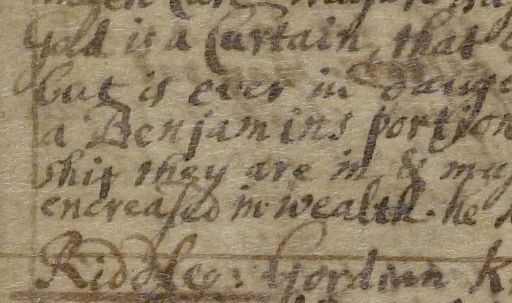 Gold is a Curtain, that
but is ever in dang
a Benjamins portion
ship they are in & mus
encreased in wealth. he
Riddle: Gordian K